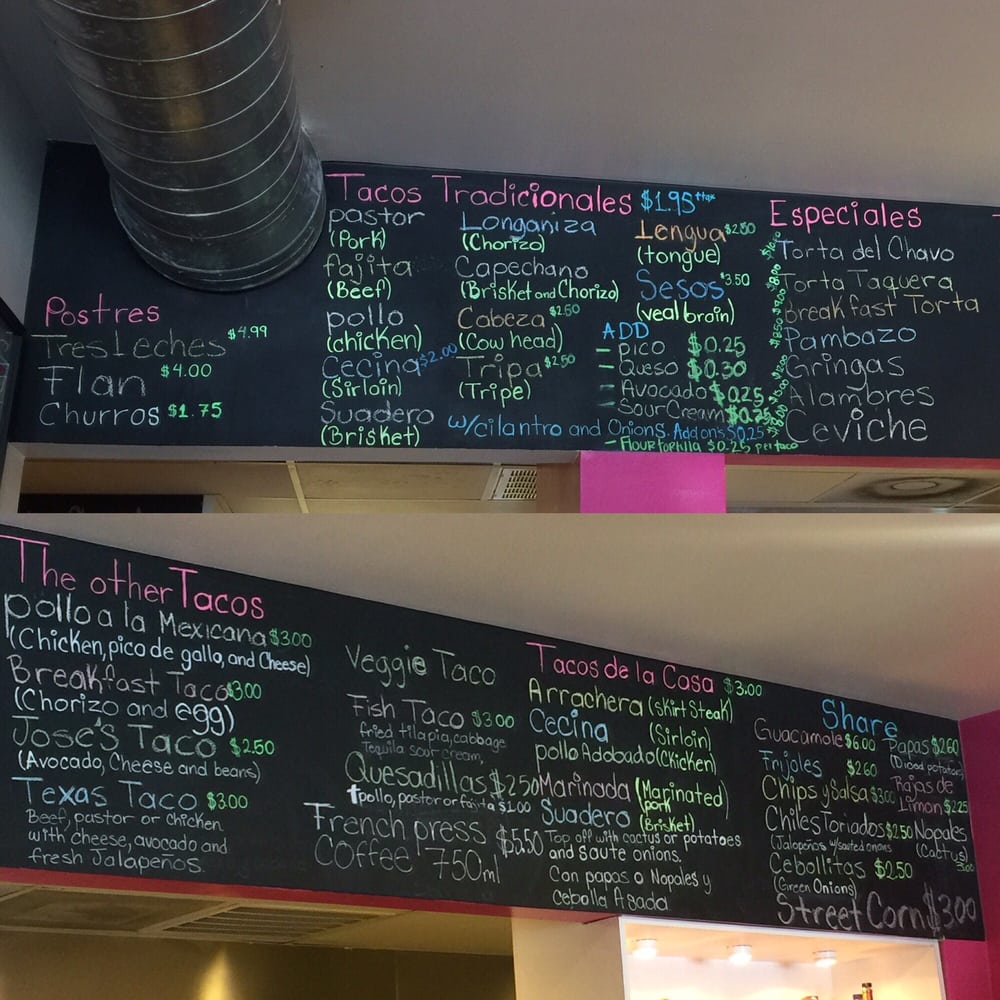 Postres
Tres Leches $4.99
Flan $4.00
Churros $1.75
Tacos Tradicionales $1.95 +tax
pastor
(Pork)
fajita
(Beef)
pollo
(chicken)
Cecina $2.00
(Sirloin)
Suadero
(Brisket)
Longaniza
(Chorizo)
Capechano
(Brisket and Chorizo)
Cabeza $2.50
(Cow head)
Tripa $2.50
(Tripe)
w/cilantro and Onions. Add on's $0.25
Lengua $2.50
(tongue)
Sesos $3.50
(veal brain)
ADD
- Pico $0.25
- Queso $0.30
- Avocado $0.25
- Sour Cream $0.25
- Flour tortilla $0.25 per taco
Especiales
Torta del Chavo
Torta Taquera
breakfast Torta
Pambazo
Gringas
Alambres
Ceviche
The other Tacos
pollo a la Mexicana $3.00
(Chicken, pico de gallo, and Cheese)
Breakfast Taco $3.00
(Chorizo and egg)
José's Taco $2.50
(Avocado, Cheese and beans)
Texas Taco $3.00
Beef, pastor or chicken
with cheese, avocado and
fresh Jalapeños.
Veggie Taco
Fish Taco $3.00
fried tilapia, cabbage
Tequila sour cream,
Quesadillas $2.50
pollo, pastor or fajita $1.00
French press $5.50
Coffee 750ml
Tacos de la Casa $3.00
Arrachera (Skirt Steak)
Cecina (Sirloin)
pollo Adobado (Chicken)
Marinada (Marinated pork)
Suadero (Brisket)
Top off with cactus or potatoes
and saute onions.
Con papas o Nopales y
Cebolla Asada
Share
Guacamole $6.00
Frijoles $2.60
Chips y Salsa $3.00
Chiles Toriados $2.50
(Jalapeños w/sauted onions
Cebollitas $2.50
(Green Onions)
Street Corn $3.00
Papas $2.60
(Diced potatoes)
Rajas de
Limon $2.25
Nopales
(Cactus)
3.00